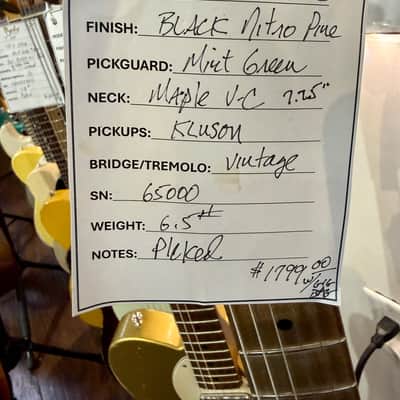 FINISH: BLACK Nitro Pine
PICKGUARD: Mint Green
NECK: Maple V-C 7.25"
PICKUPS: Kluson
BRIDGE/TREMOLO: Vintage
SN: 65000
WEIGHT: 6.5#
NOTES: Pleked
#1799.00
w/GIG
BAG